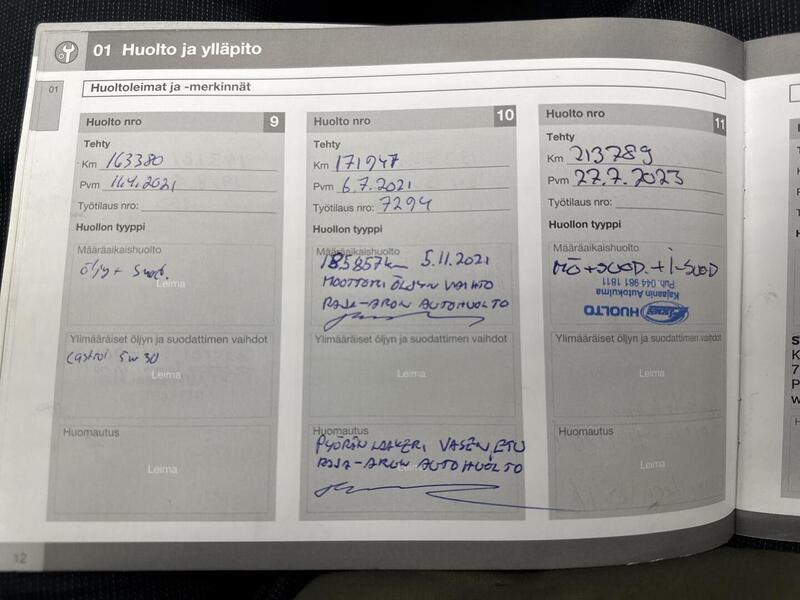 01 Huolto ja ylläpito
01
Huoltoleimat ja -merkinnät
Huolto nro 9
Tehty
Km 163380
Pvm 16.4.2021
Työtilaus nro:
Huollon tyyppi
Määräaikaishuolto
öljy + suod.
Leima
Ylimääräiset öljyn ja suodattimen vaihdot
Castrol 5w30
Leima
Huomautus
Leima
12
Huolto nro 10
Tehty
Km 171947
Pvm 6.7.2021
Työtilaus nro: 7294
Huollon tyyppi
Määräaikaishuolto
185857km 5.11.2021
MOOTTORI ÖLJYN VAIHTO
RAJA-ARON AUTOHUOLTO
Ylimääräiset öljyn ja suodattimen vaihdot
Leima
Huomautus
PYÖRÄN LAAKERI VASEN ETU
RAJA-ARON AUTOHUOLTO
Huolto nro 11
Tehty
Km 213789
Pvm 27.7.2023
Työtilaus nro:
Huollon tyyppi
Määräaikaishuolto
MÖ+SUOD.+I-SUOD
HUOLTO
Kajaanin Autokulma
Puh. 044 981 1811
Ylimääräiset öljyn ja suodattimen vaihdot
Leima
Huomautus
Leima